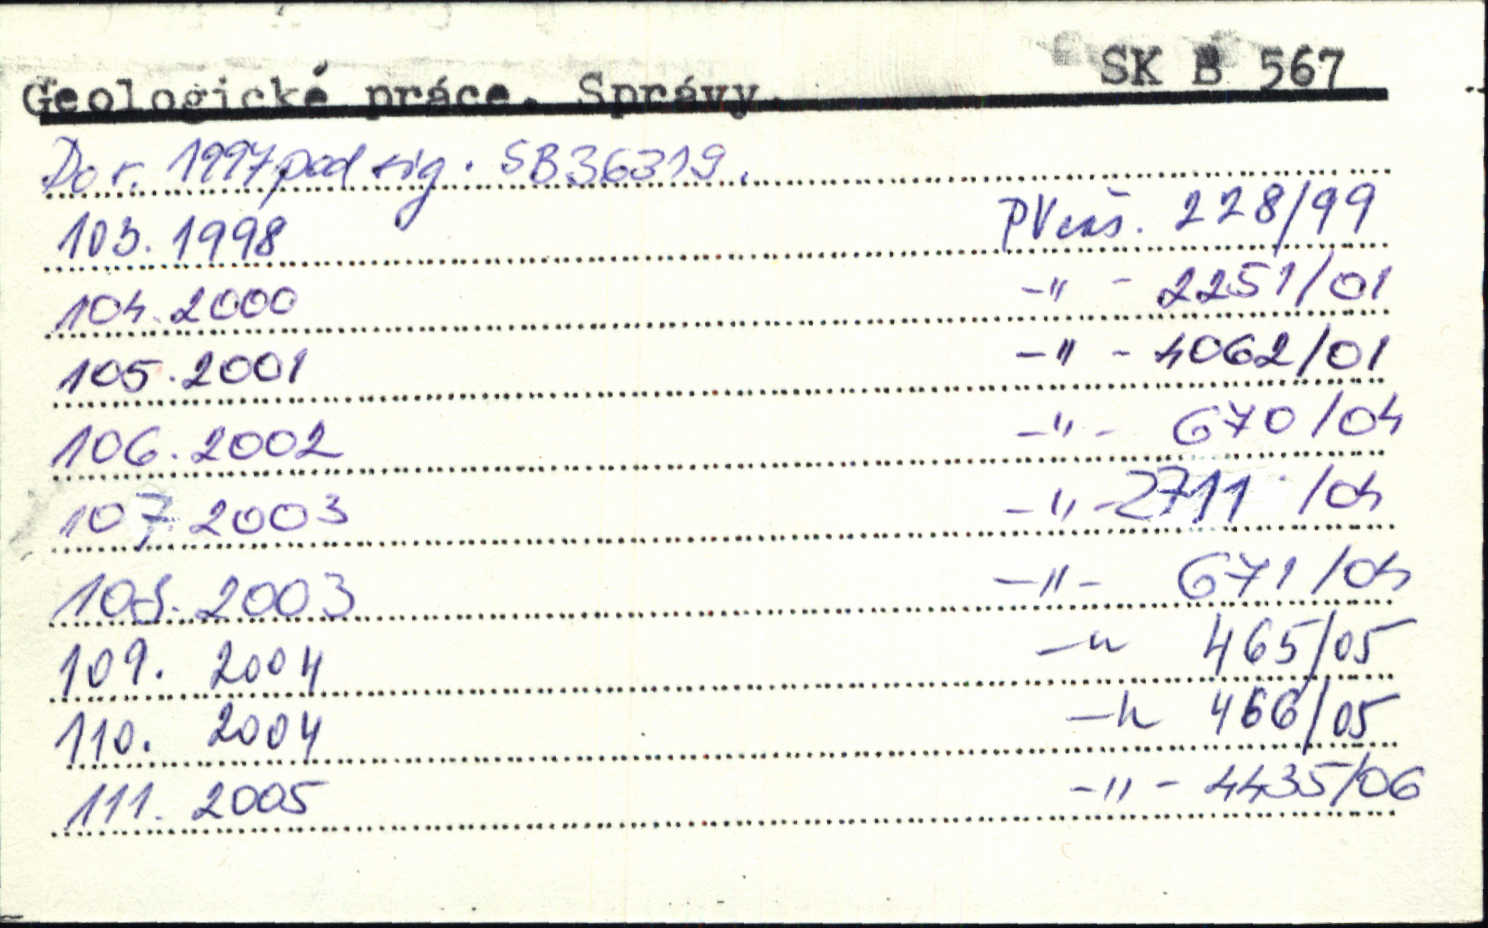 Geologické práce. Správy. SK B 567
Do r. 1997 pod sig. SB36319.
103. 1998 PV 228/99
104. 2000 -"- 2251/01
105. 2001 -"- 4062/01
106. 2002 -"- 670/04
107. 2003 -"- 2711/04
108. 2003 -"- 671/04
109. 2004 -"- 465/05
110. 2004 -"- 466/05
111. 2005 -"- 4435/06